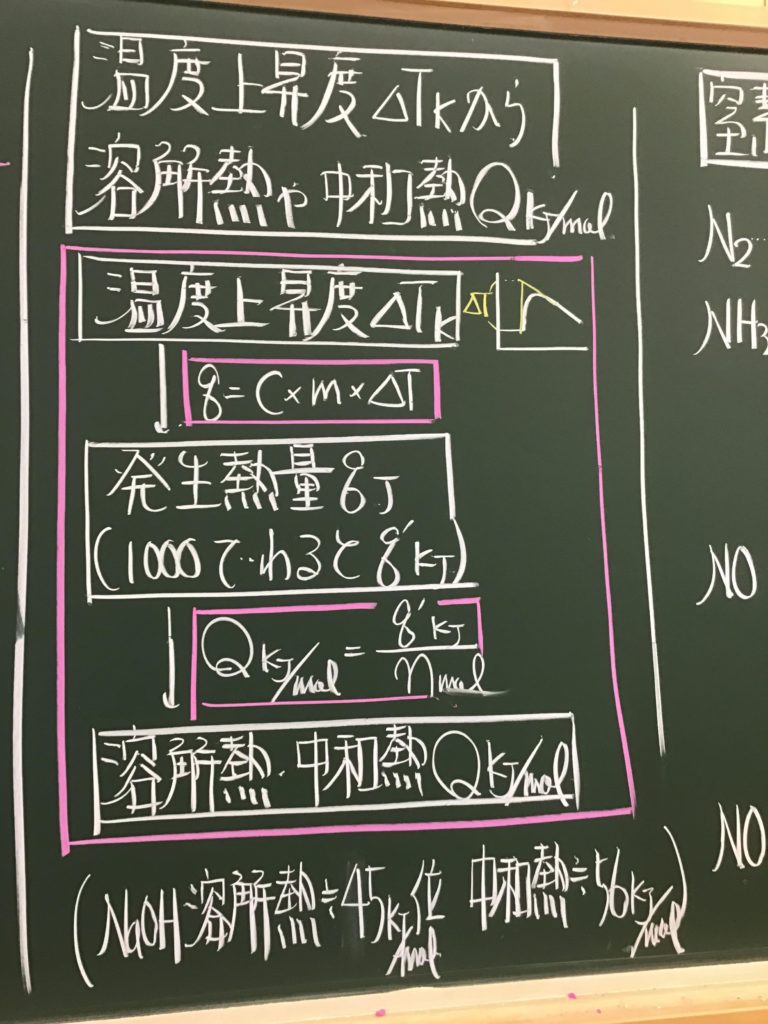 温度上昇度 ΔTKから
溶解熱や中和熱 Q KJ/mol
温度上昇度 ΔTK
ΔT
q = C × m × ΔT
発生熱量 q J
(1000でわると q' KJ)
Q KJ/mol = q' KJ / n mol
溶解熱・中和熱 Q KJ/mol
(NaOH溶解熱≒45KJ/mol位 中和熱≒56KJ/mol)
N2…
NH3
NO
NO